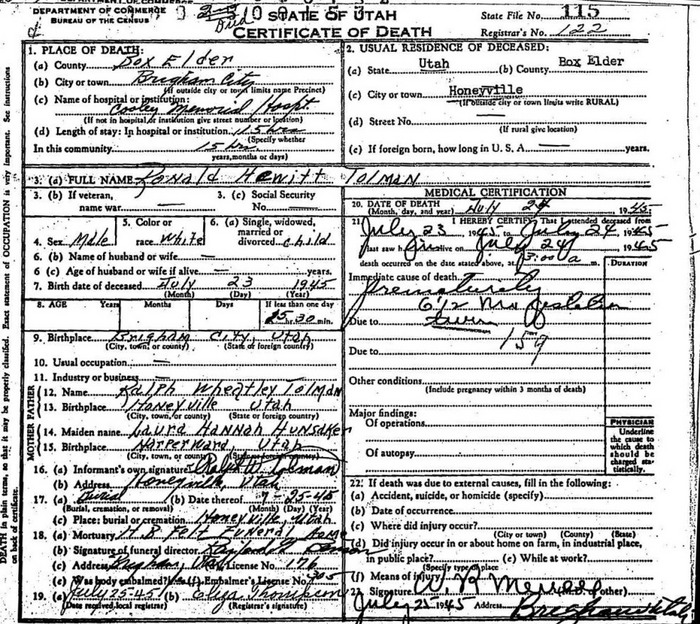 DEPARTMENT OF COMMERCE
BUREAU OF THE CENSUS
STATE OF UTAH
CERTIFICATE OF DEATH
State File No. 115
Registrar's No. 122
1. PLACE OF DEATH:
(a) County Box Elder
(b) City or town Brigham City
(If outside city or town limits name Precinct)
(c) Name of hospital or institution:
Cooley Memorial Hospt
(If not in hospital or institution give street number or location)
(d) Length of stay: In hospital or institution 15 hrs
(Specify whether
In this community 15 hrs
years, months or days)
2. USUAL RESIDENCE OF DECEASED:
(a) State Utah (b) County Box Elder
(c) City or town Honeyville
(If outside city or town limits write RURAL)
(d) Street No.
(If rural give location)
(e) If foreign born, how long in U. S. A. — years.
3. (a) FULL NAME Ronald Hewitt Tolman
3. (b) If veteran,
name war —
3. (c) Social Security
No. —
4. Sex Male
5. Color or
race White
6. (a) Single, widowed,
married or
divorced child
6. (b) Name of husband or wife —
6. (c) Age of husband or wife if alive — years.
7. Birth date of deceased July 23 1945
(Month) (Day) (Year)
8. AGE Years Months Days If less than one day
hr. 30 min.
9. Birthplace Brigham City, Utah
(City, town, or county) (State or foreign country)
10. Usual occupation —
11. Industry or business —
FATHER
12. Name Ralph Wheatley Tolman
13. Birthplace Honeyville Utah
(City, town, or county) (State or foreign country)
MOTHER
14. Maiden name Laura Hannah Hunsaker
15. Birthplace Harper ward, Utah
(City, town, or county) (State or foreign country)
16. (a) Informant's own signature Ralph W. Tolman
(b) Address Honeyville, Utah
17. (a) Burial (b) Date thereof 7-25-45
(Burial, cremation, or removal) (Month) (Day) (Year)
(c) Place: burial or cremation Honeyville, Utah
18. (a) Mortuary H B Felt Funeral Home
(b) Signature of funeral director
(c) Address Brigham, Utah License No. 176
(e) Was body embalmed? (f) Embalmer's License No.
19. (a) July 25-45 (b) Eliza Thompson
(Date received local registrar) (Registrar's signature)
MEDICAL CERTIFICATION
20. DATE OF DEATH
(Month, day, and year) July 24 1945
21. I HEREBY CERTIFY That I attended deceased from
July 23, 1945 to July 24, 1945
last saw h im alive on July 24, 1945
death occurred on the date stated above, at 3:00 a m.
DURATION
Immediate cause of death
Prematurity
6 1/2 Mo gestation
Due to twin
159
Due to
Other conditions
(Include pregnancy within 3 months of death)
Major findings:
Of operations
Of autopsy
PHYSICIAN
Underline
the cause to
which death
should be
charged sta-
tistically.
22. If death was due to external causes, fill in the following:
(a) Accident, suicide, or homicide (specify)
(b) Date of occurrence
(c) Where did injury occur?
(City or town) (County) (State)
(d) Did injury occur in or about home on farm, in industrial place,
in public place? (e) While at work?
(Specify type of place)
(f) Means of injury
23. Signature W. R. Merrell (M. D. or other)
July 25 1945 Address Brigham Utah
DEATH in plain terms, so that it may be properly classified. Exact statement of OCCUPATION is very important. See instructions
on back of certificate.